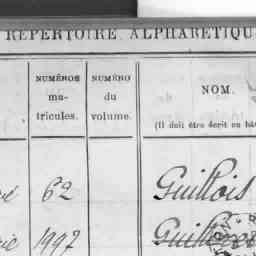 RÉPERTOIRE ALPHABÉTIQU
NUMÉROS
ma-
tricules.
NUMÉRO
du
volume.
NOM.
(Il doit être écrit en bâ
62 Guillois
1997